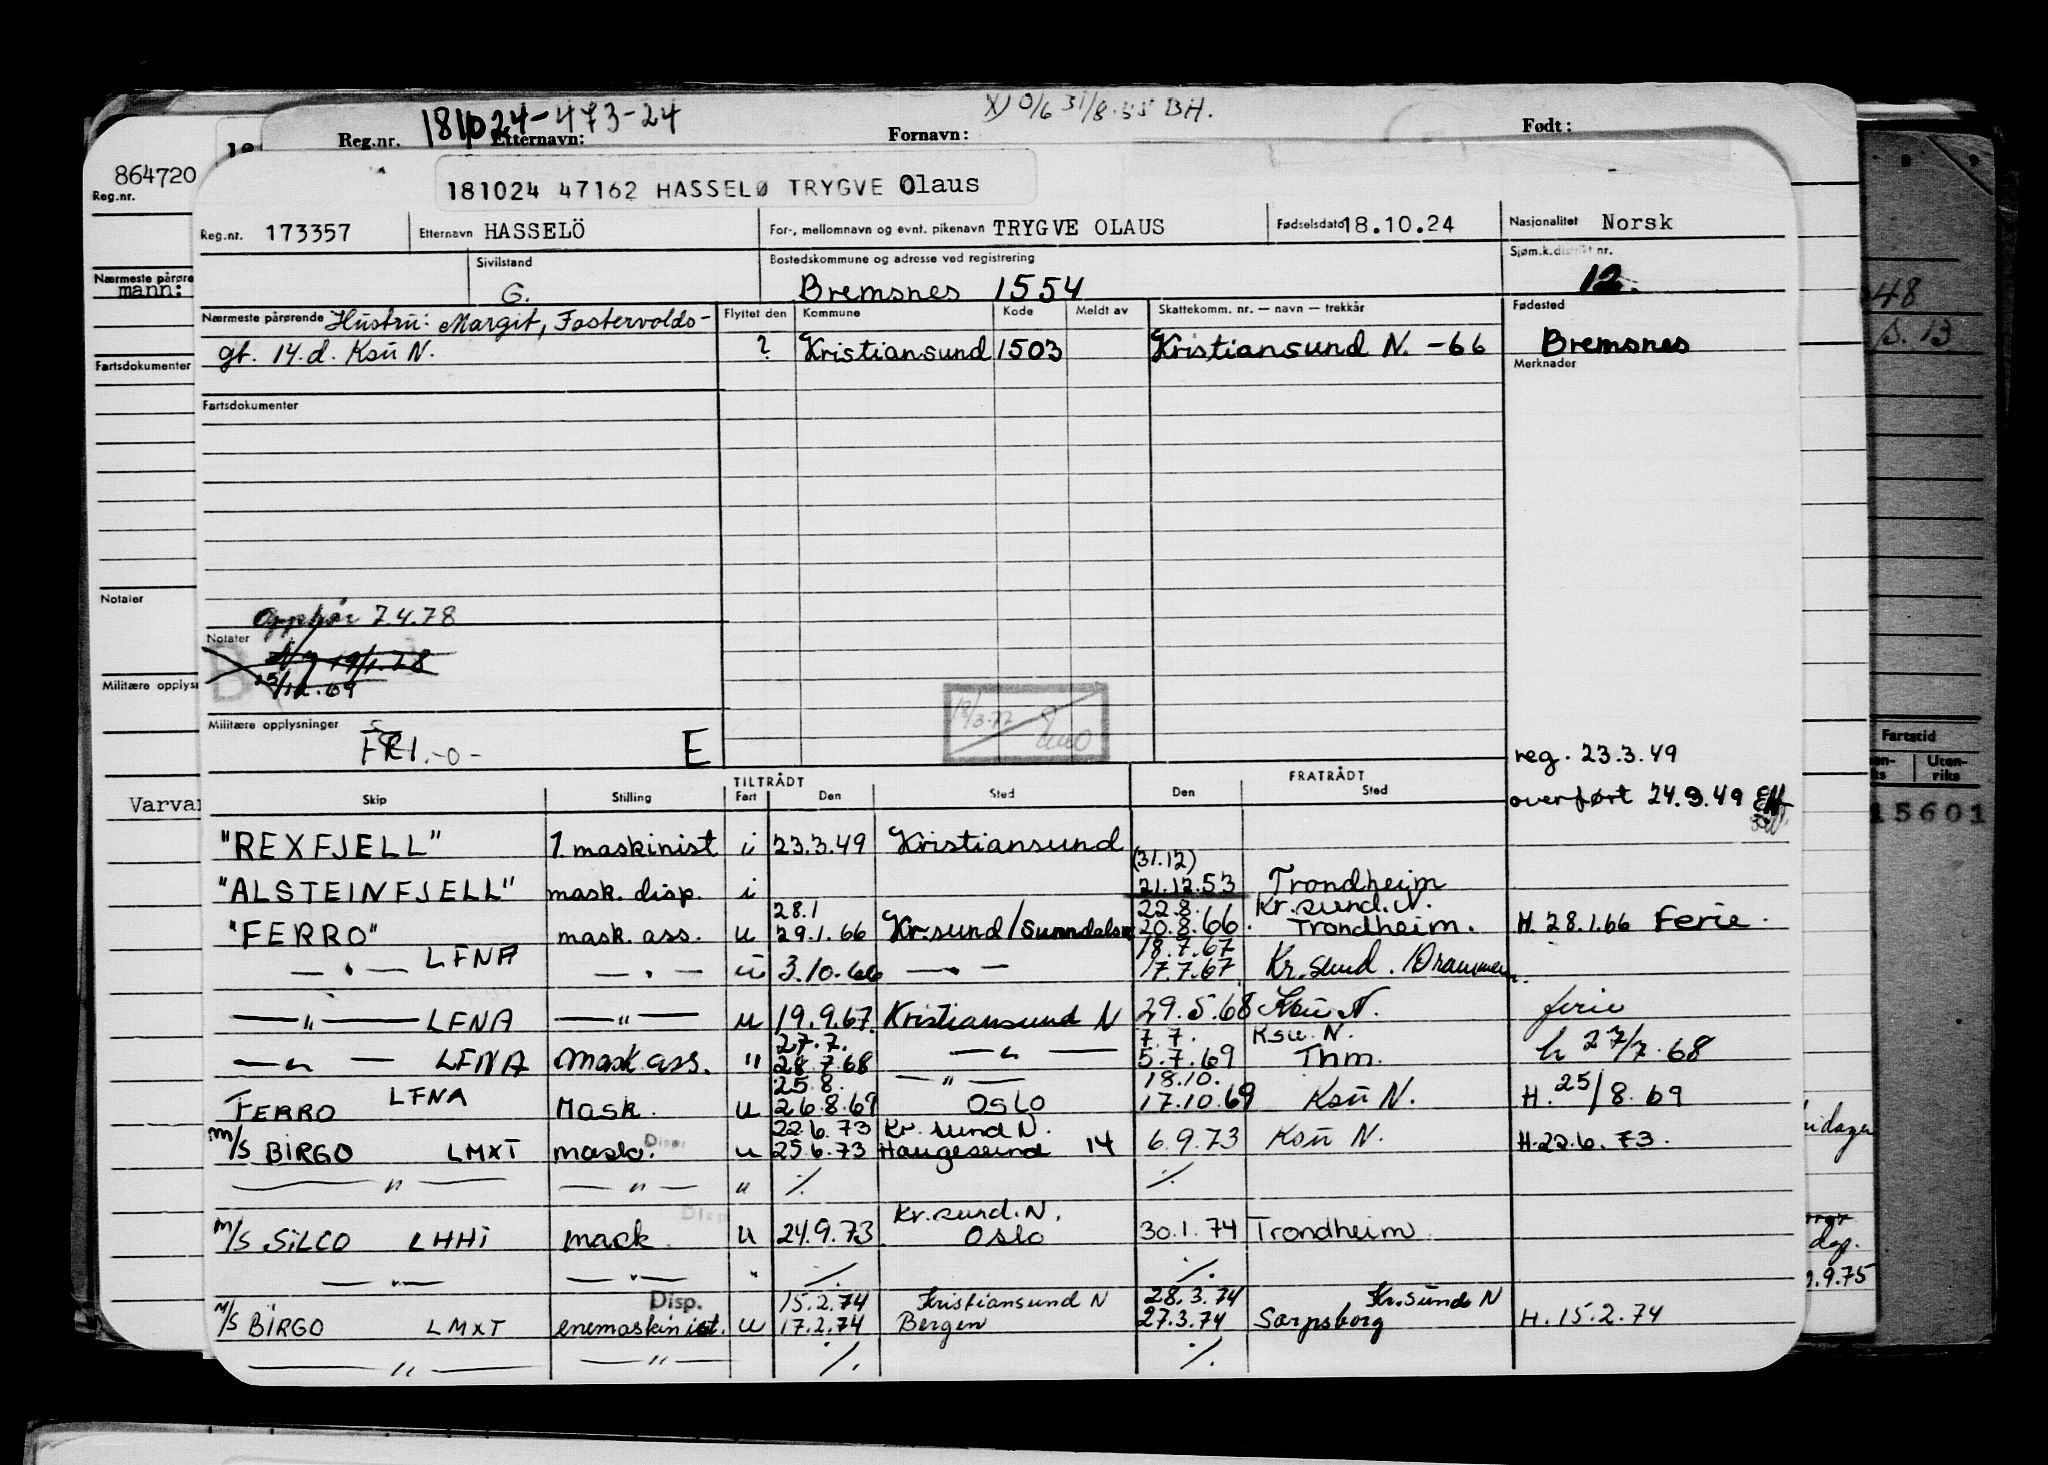 181024-473-24
X) 0/6 31/8.55 BH.
Reg.nr. Etternavn: Fornavn: Født:
864720
Reg.nr.
181024 47162 HASSELØ TRYGVE Olaus
Reg.nr. 173357 Etternavn HASSELÖ For-, mellomnavn og evnt. pikenavn TRYGVE OLAUS Fødselsdato 18.10.24 Nasjonalitet Norsk
Sivilstand Bostedskommune og adresse ved registrering Sjøm.k.distrikt nr.
G. Bremsnes 1554 12.
Nærmeste pårøre
mann:
Nærmeste pårørende Hustru: Margit, Fostervolds- Flyttet den Kommune Kode Meldt av Skattekomm. nr. — navn — trekkår Fødested
gt. 14.d. Ksu N. ? Kristiansund 1503 Kristiansund N. -66 Bremsnes
Merknader
Fartsdokumenter
Fartsdokumenter
48
S. 13
Notater
Opphør 7.4.78
Notater
19/1.78
25/12.69
Militære opplys
Militære opplysninger
FRI.-0- E
18/3-77
reg. 23.3.49
overført 24.9.49
Fartstid
Uten-
riks
15601
Varvar
TILTRÅDT FRATRÅDT
Skip Stilling Fart Den Sted Den Sted
"REXFJELL" 1. maskinist i 23.3.49 Kristiansund
(31.12)
"ALSTEINFJELL" mask. disp. i 21.12.53 Trondheim
28.1 22.8. Kr.sund.N.
"FERRO" mask. ass. u 29.1.66 Kr.sund/Sunndalsø 20.8.66. Trondheim. H. 28.1.66 Ferie.
18.7.67
— " — LFNA — " — u 3.10.66 — " — 17.7.67 Kr.sund. /Drammen.
— " — LFNA — " — u 19.9.67 Kristiansund N 29.5.68 Ksu N. ferie
27.7. 7.7. Ksu. N.
— " — LFNA Mask ass. " 28.7.68 — " — 5.7.69 Thm. h 27/7.68
25.8. — " — 18.10.
FERRO LFNA Mask. u 26.8.69 Oslo 17.10.69 Ksu N. H. 25/8.69
22.6.73 Kr. sund N.
M/S BIRGO LMXT mask. Disp. u 25.6.73 Haugesund 14 6.9.73 Ksu N. H.22.6.73.
— " — — " — " ./. ./.
Disp. Kr.sund.N.
M/S SILCO LHHI mask. u 24.9.73 Oslo 30.1.74 Trondheim
— " — — " — " ./. ./.
Disp. 15.2.74 Kristiansund N 28.3.74 Kr.sund N
M/S BIRGO LMXT enemaskinist. u 17.2.74 Bergen 27.3.74 Sarpsborg H. 15.2.74
— " — — " — ./. ./.
dag.
9.75